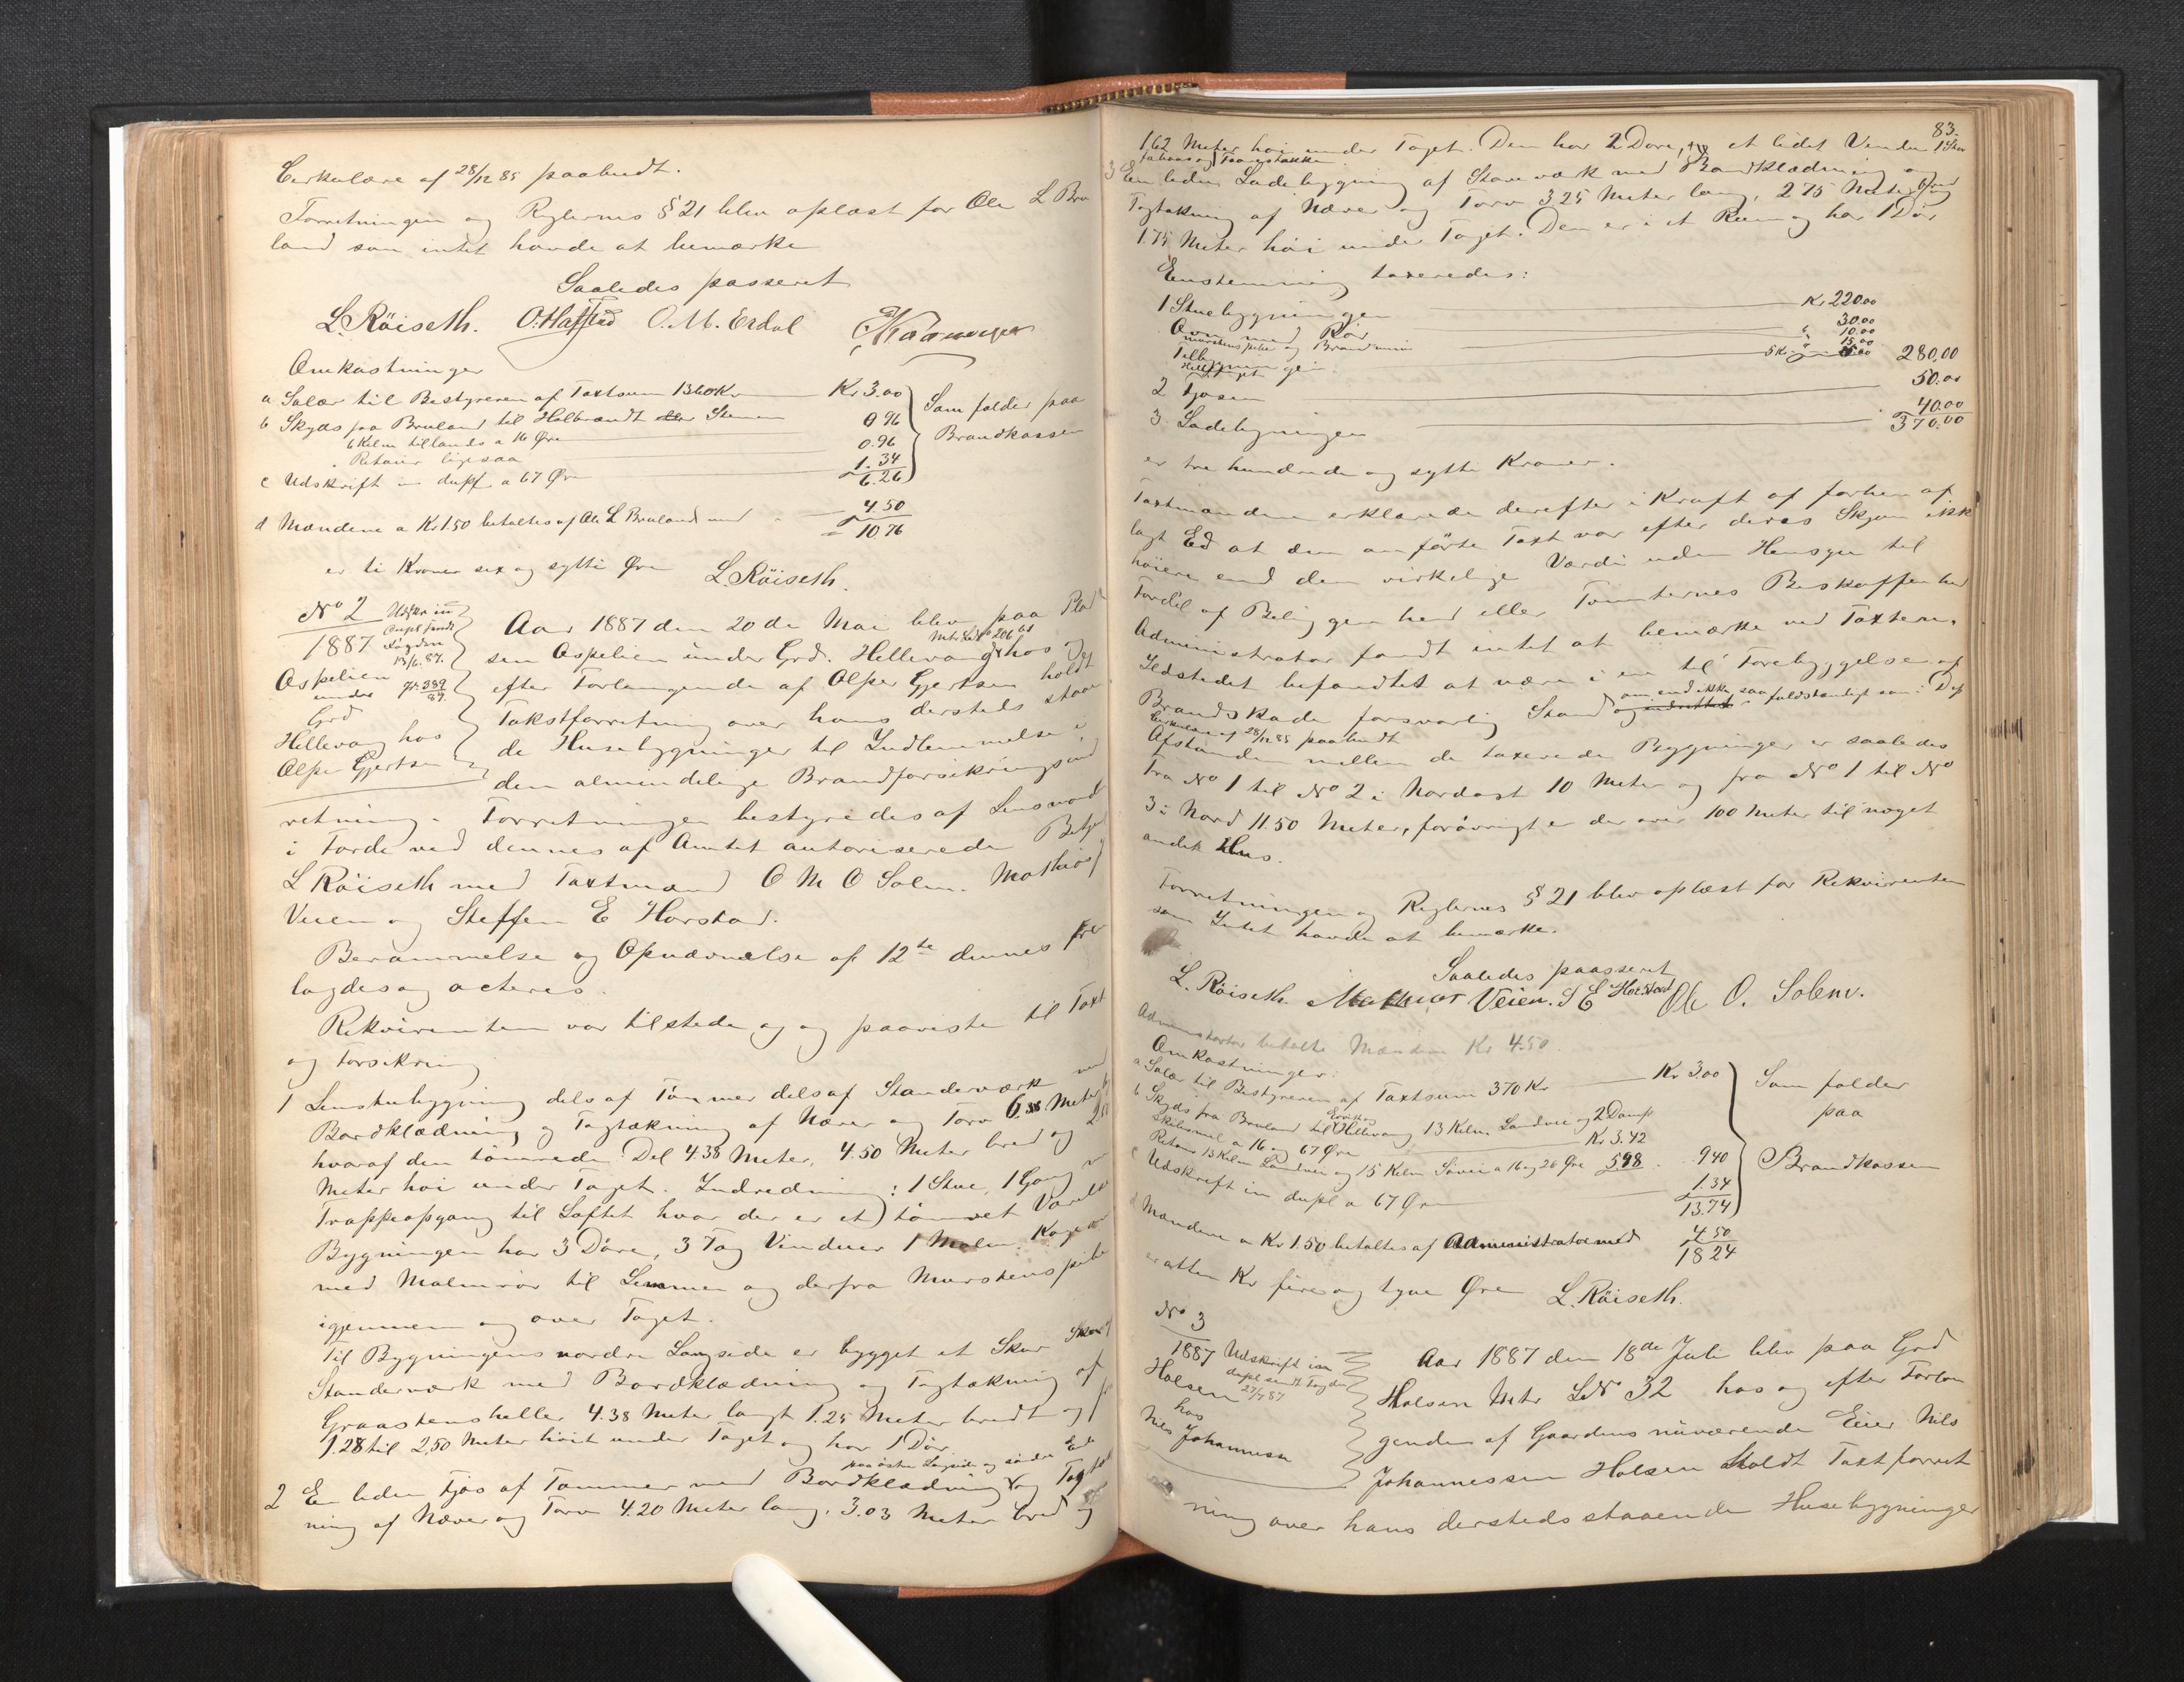 Cirkulære af 28/12 85 paabudt.
Forretningen og Reglernes § 21 blev oplæst for Ole L Bru
land som intet havde at bemærke
Saaledes passeret
L. Röiseth. O. Hafstad O. M. Erdal
Omkostninger
a Salær til Bestyreren af Taxtsum 1360 Kr Kr 3.00
b Skyds fra Bruland til Halbrændt Stenen
6 Kilm tillands a 16 Øre 0 96
Retour ligesaa 0.96
c Udskrift in dupl. a 67 Øre 1.34
6.26
Som falder paa
Brandkassen
d Mændene a Kr 1.50 betaltes af Ole L Bruland med 4.50
10 76
er ti Kroner sex og sytti Øre L. Röiseth.
No 2
1887
Udskr in
dupl sendt
Fogden
13/6 87.
Aspelien
under
Grd
Hellevang hos
Olper Gjertsen
Aar 1887 den 20de Mai blev paa Plad
sen Aspelien under Grd. Hellevang hos og
efter Forlangende af Olper Gjertsen holdt
Takstforretning over hans dersteds staaen
de Husebygninger til Indlemmelse i
den almindelige Brandforsikringsind
retning. Forretningen bestyredes af Lensmand
i Førde ved dennes af Amtet autoriserede Betje
L Röiseth med Taxtmænd O M O Solem. Mathias
Veien og Steffen E Horstad.
Berammelse og Opnævnelse af 12te dennes frem
lagdes og acteres.
Rekvirenten var tilstede og paaviste til Taxt
og Forsikring
1 Lenstubygning dels af Tømmer dels af Standerværk med
Bordklædning og Tagtækning af Næver og Torv Meter
hvoraf den tømrede Del 4.38 Meter, 4.50 Meter bred og
Meter høi under Taget. Indredning: 1 Stue, 1 Gang
Trappeopgang til Loftet hvor der er et tømret Værelse
Bygningen har 3 Døre, 3 Fag Vinduer 1 Malm. Kogeovn
med Malmrør til Lemmen og derfra Murstenspibe
igjennem og over Taget.
Til Bygningens nordre Langside er bygget et Skur
Standerværk med Bordklædning og Tagtækning af
Graastensheller 4.38 Meter langt 1.25 Meter bredt og
1.28 til 2,50 Meter høit under Taget og har 1 Dør
paa østre Langside og søndre Ende
2 En liden Fjøs af Tømmer med Bordklædning og Tagtæk
ning af Næver og Torv 4.20 Meter lang, 3.03 Meter bred og
83.
1.62 Meter høi under Taget. Den har 2 Døre, et lidet Vindue
3 En liden Ladebygning af Staveværk med Bordklædning og
Tagtækning af Næver og Torv 3 25 Meter lang, 2 75 Meter bred og
1.75 Meter høi under Taget. Den er i et Rum og har 1 Dør,
Eenstemmig taxeredes:
1 Stuebygningen Kr 220.00
Ovn med Rør 30.00
Murstenspibe og Brandmur 10.00
Tilbygningen 15.00
Helletaget 5 Kr 280,00
2 Fjøsen 50.00
3. Ladebygningen 40.00
370.00
er tre hundrede og sytti Kroner.
Taxtmændene erklærede derefter i Kraft af forhen af
lagt Ed at den anførte Taxt var efter deres Skjøn ikke
høiere end den virkelige Værdi uden Hensyn til
Fordel af Beliggenhed eller Tomternes Beskaffenhed
Administrator fandt intet at bemærke ved Taxten.
Ildstedet befandtes at være i en til Forebyggelse af
Brandskade forsvarlig Stand om end ikke saa fuldstændigt som i Dept
Cirkulære af 28/12 85 paabudt
Afstanden mellem de taxerede Bygninger er saaledes
Fra No 1 til No 2 i Nordost 10 Meter og fra No 1 til No
3 i Nord 11.50 Meter, forøvrigt er der over 100 Meter til noget
andet Hus.
Forretningen og Reglernes § 21 blev oplæst for Rekvirenten
som Intet havde at bemærke.
Saaledes paasseret
L. Röiseth. Mathias Veien. S E Horstad Ole O. Solem.
Administrator betalte Mændene Kr 4.50.
Omkostninger:
a Salær til Bestyreren af Taxtsum 370 Kr Kr 3.00
b Skyds fra Bruland til Hellevang 13 Kilm. Landvei og 2 Damp
skibsmil a 16 og 67 Øre Kr 3.42
Retour 13 Kilm Landvei og 15 Kilm Søvei a 16 og 26 Øre 598 940
c Udskrift in dupl a 67 Øre 1.34
13.74
Som falder
paa
Brandkassen
d Mændene a Kr 1.50 betaltes af Administrator med 4.50
18 24
er atten Kr fire og tyve Øre L. Röiseth.
No 3
1887
Udskrift in
dupl sendt Fogden
27/7 87
Holsen
hos
Nils Johannesen
Aar 1887 den 18de Juli blev paa Grd
Holsen Mtr LNo 32 hos og efter Forlan
gende af Gaardens nuværende Eier Nils
Johannessen Holsen holdt Taxtforret
ning over hans dersteds staaende Husebygninger